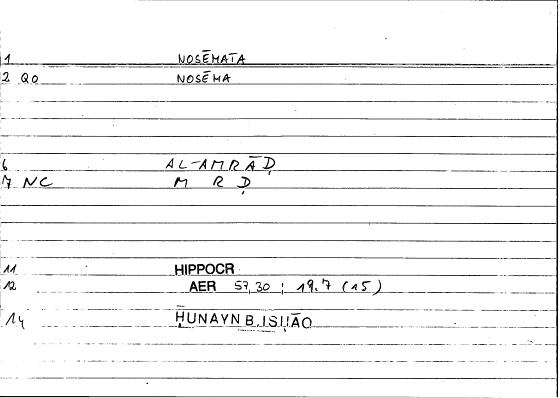 1 NOSĒMATA
2 QO NOSĒMA
6 AL-AMRĀḌ
7 NC M R Ḍ
11 HIPPOCR
12 AER 57,30 ; 19.7 (15)
14 ḤUNAYN B. ISḤĀQ